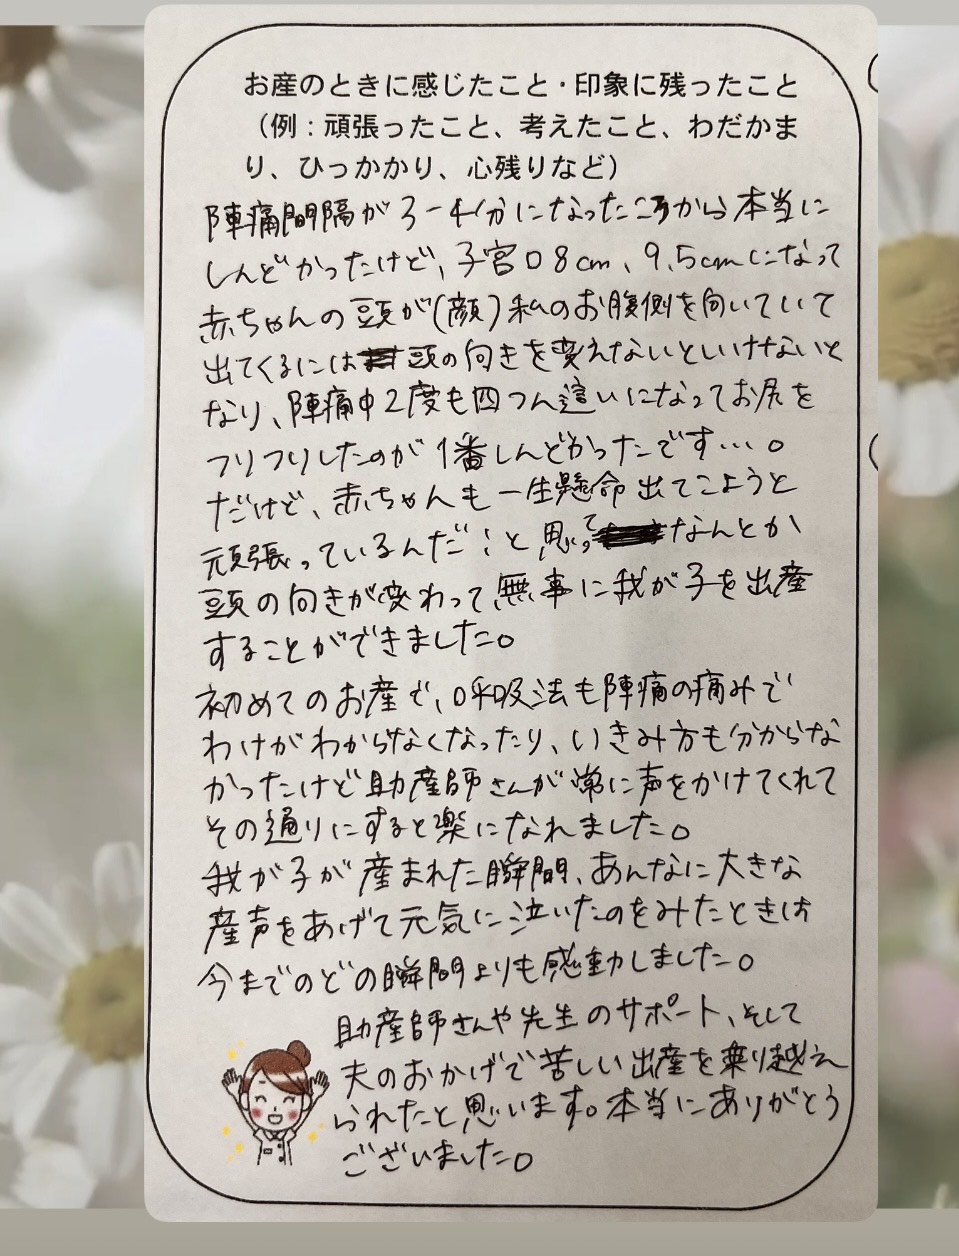 お産のときに感じたこと・印象に残ったこと
（例：頑張ったこと、考えたこと、わだかま
り、ひっかかり、心残りなど）
陣痛間隔が3-4分になったころから本当に
しんどかったけど、子宮口8cm、9.5cmになって
赤ちゃんの頭が(顔)私のお腹側を向いていて
出てくるには頭の向きを変えないといけないと
なり、陣痛中2度も四つん這いになってお尻を
フリフリしたのが1番しんどかったです…。
だけど、赤ちゃんも一生懸命出てこようと
頑張っているんだ!と思ってなんとか
頭の向きが変わって無事に我が子を出産
することができました。
初めてのお産で、呼吸法も陣痛の痛みで
わけがわからなくなったり、いきみ方も分からな
かったけど助産師さんが常に声をかけてくれて
その通りにすると楽になれました。
我が子が産まれた瞬間、あんなに大きな
産声をあげて元気に泣いたのをみたときは
今までのどの瞬間よりも感動しました。
助産師さんや先生のサポート、そして
夫のおかげで苦しい出産を乗り越え
られたと思います。本当にありがとう
ございました。